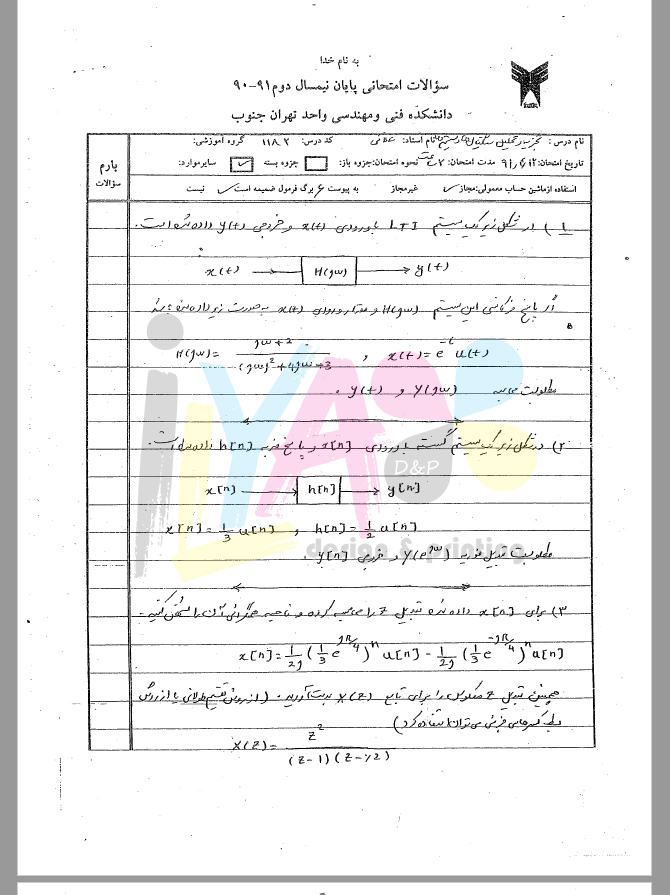 به نام خدا
سؤالات امتحانی پایان نیمسال دوم ۹۱-۹۰
دانشکده فنی ومهندسی واحد تهران جنوب
نام درس : تجزیه و تحلیل سیگنال‌ها و سیستم‌ها نام استاد: کد درس: ۱۱۸۲ گروه آموزشی:
تاریخ امتحان: مدت امتحان: نحوه امتحان: جزوه باز: جزوه بسته سایرموارد:
استفاده ازماشین حساب معمولی:مجاز غیرمجاز به پیوست ۶ برگ فرمول ضمیمه است نیست
بارم
سؤالات
۱) در شکل زیر یک سیستم LTI با ورودی x(t) و خروجی y(t) داده شده است.
x(t) → H(jω) → y(t)
اگر پاسخ فرکانسی این سیستم H(jω) و مقدار ورودی x(t) به صورت زیر داده شده باشد
H(jω) = (jω+2) / ((jω)²+4jω+3) , x(t) = e^{-t} u(t)
مطلوبست محاسبه Y(jω) و y(t) .
۲) در شکل زیر یک سیستم گسسته با ورودی x[n] و پاسخ ضربه h[n] داده شده است.
x[n] → h[n] → y[n]
x[n] = 1/3 u[n] , h[n] = 1/2 u[n]
مطلوبست تبدیل فوریه Y(e^{jω}) و خروجی y[n] .
۳) برای x[n] داده شده تبدیل Z را محاسبه کرده و ناحیه همگرائی آن را مشخص کنید.
x[n] = 1/2j (1/3 e^{jπ/4})^n u[n] - 1/2j (1/3 e^{-jπ/4})^n u[n]
همچنین تبدیل Z معکوس را برای تابع X(Z) بدست آورید. (از روش تقسیم طولانی یا از روش
بسط کسرهای جزئی می‌توان استفاده کرد)
X(Z) = Z² / (Z-1)(Z-0/2)
iliYAS
D&P
design & printing